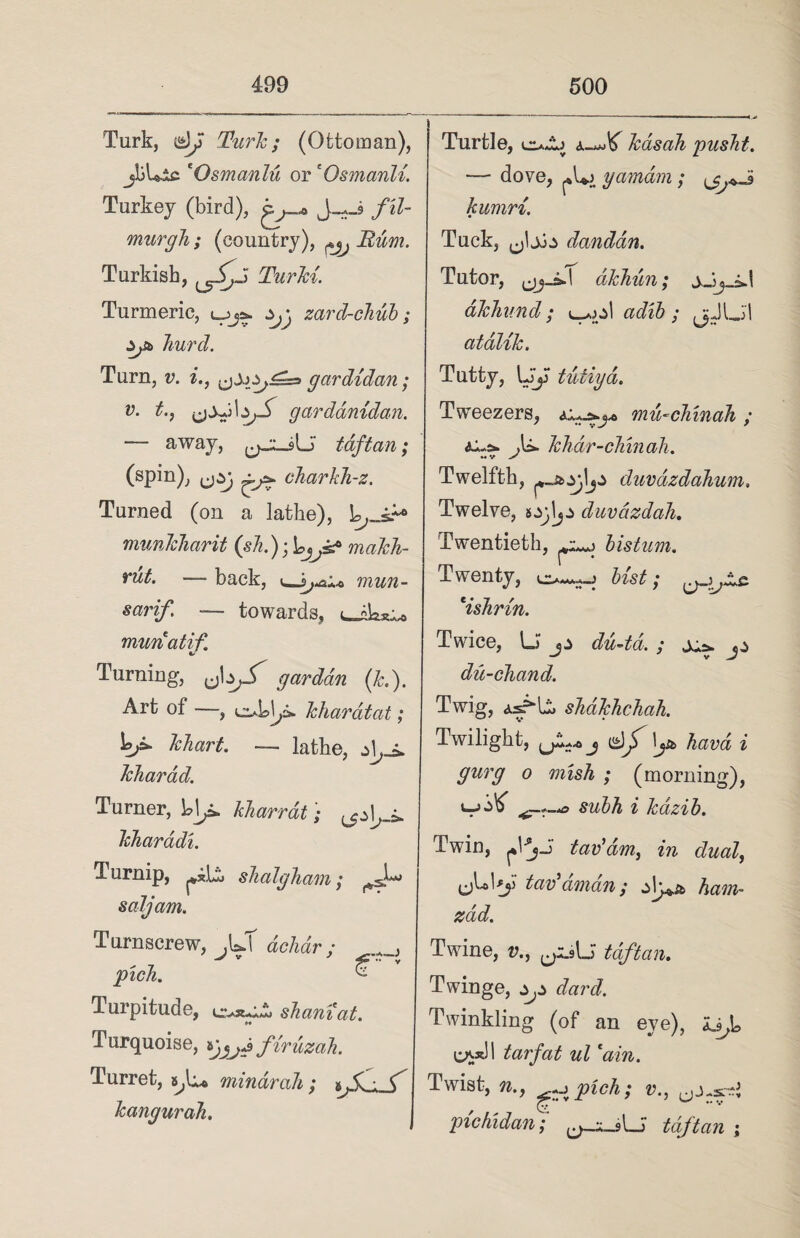 499
500
Turk, ترك Turk; (Ottoman),
عثمانلو 'Osmanlú or 'Osmanlí.
Turkey (bird), فيل مرغ fíl-
murgh; (country), روم Rúm.
Turkish, تركي Turkí.
Turmeric, زرد چوب zard-chúb;
هرد hurd.
Turn, v. i., گرديدن gardídan;
v. t., گردانيدن gardánídan.
— away, تافتن táftan;
(spin), چرخ زدن charkh-z.
Turned (on a lathe), منخرط
munkharit (sh.); مخروط makh-
rút. — back, منصرف mun-
sarif. — towards, منعطف
mun'atif.
Turning, گردان gardán (k.).
Art of —, خراطت kharátat;
خرط khart. — lathe, خراد
kharád.
Turner, خراط kharrát; خرادي
kharádí.
Turnip, شلغم shalgham; سلجم
saljam.
Turnscrew, آچار áchár; پيچ
pích.
Turpitude, شنيعت shaní'at.
Turquoise, فيروزه fírúzah.
Turret, مناره minárah; كنگره
kangurah.
Turtle, كاسه پشت kásah pusht.
— dove, يمام yamám; قمري
kumrí.
Tuck, دندان dandán.
Tutor, آخون ákhún; آخوند
ákhund; اديب adíb; اتاليق
atálík.
Tutty, توتيا tútiyá.
Tweezers, موچينه mú-chínah;
خار چينه khár-chínah.
Twelfth, دوازدهم duvázdahum.
Twelve, دوازده duvázdah.
Twentieth, بيستم bístum.
Twenty, بيست bíst; عشرين
'ishrín.
Twice, دو تا dú-tá.; دو چند
dú-chand.
Twig, شاخچه shákhchah.
Twilight, هوا گرگ و ميش havá i
gurg o mísh; (morning),
صبح كاذب subh i kázib.
Twin, توأم tav'ám, in dual,
توأمان tav'ámán; همزاد ham-
zád.
Twine, v., تافتن táftan.
Twinge, درد dard.
Twinkling (of an eye), طرفة
العين tarfat ul 'ain.
Twist, n., پيچ pích; v., پيچيدن
píchídan; تافتن táftan;